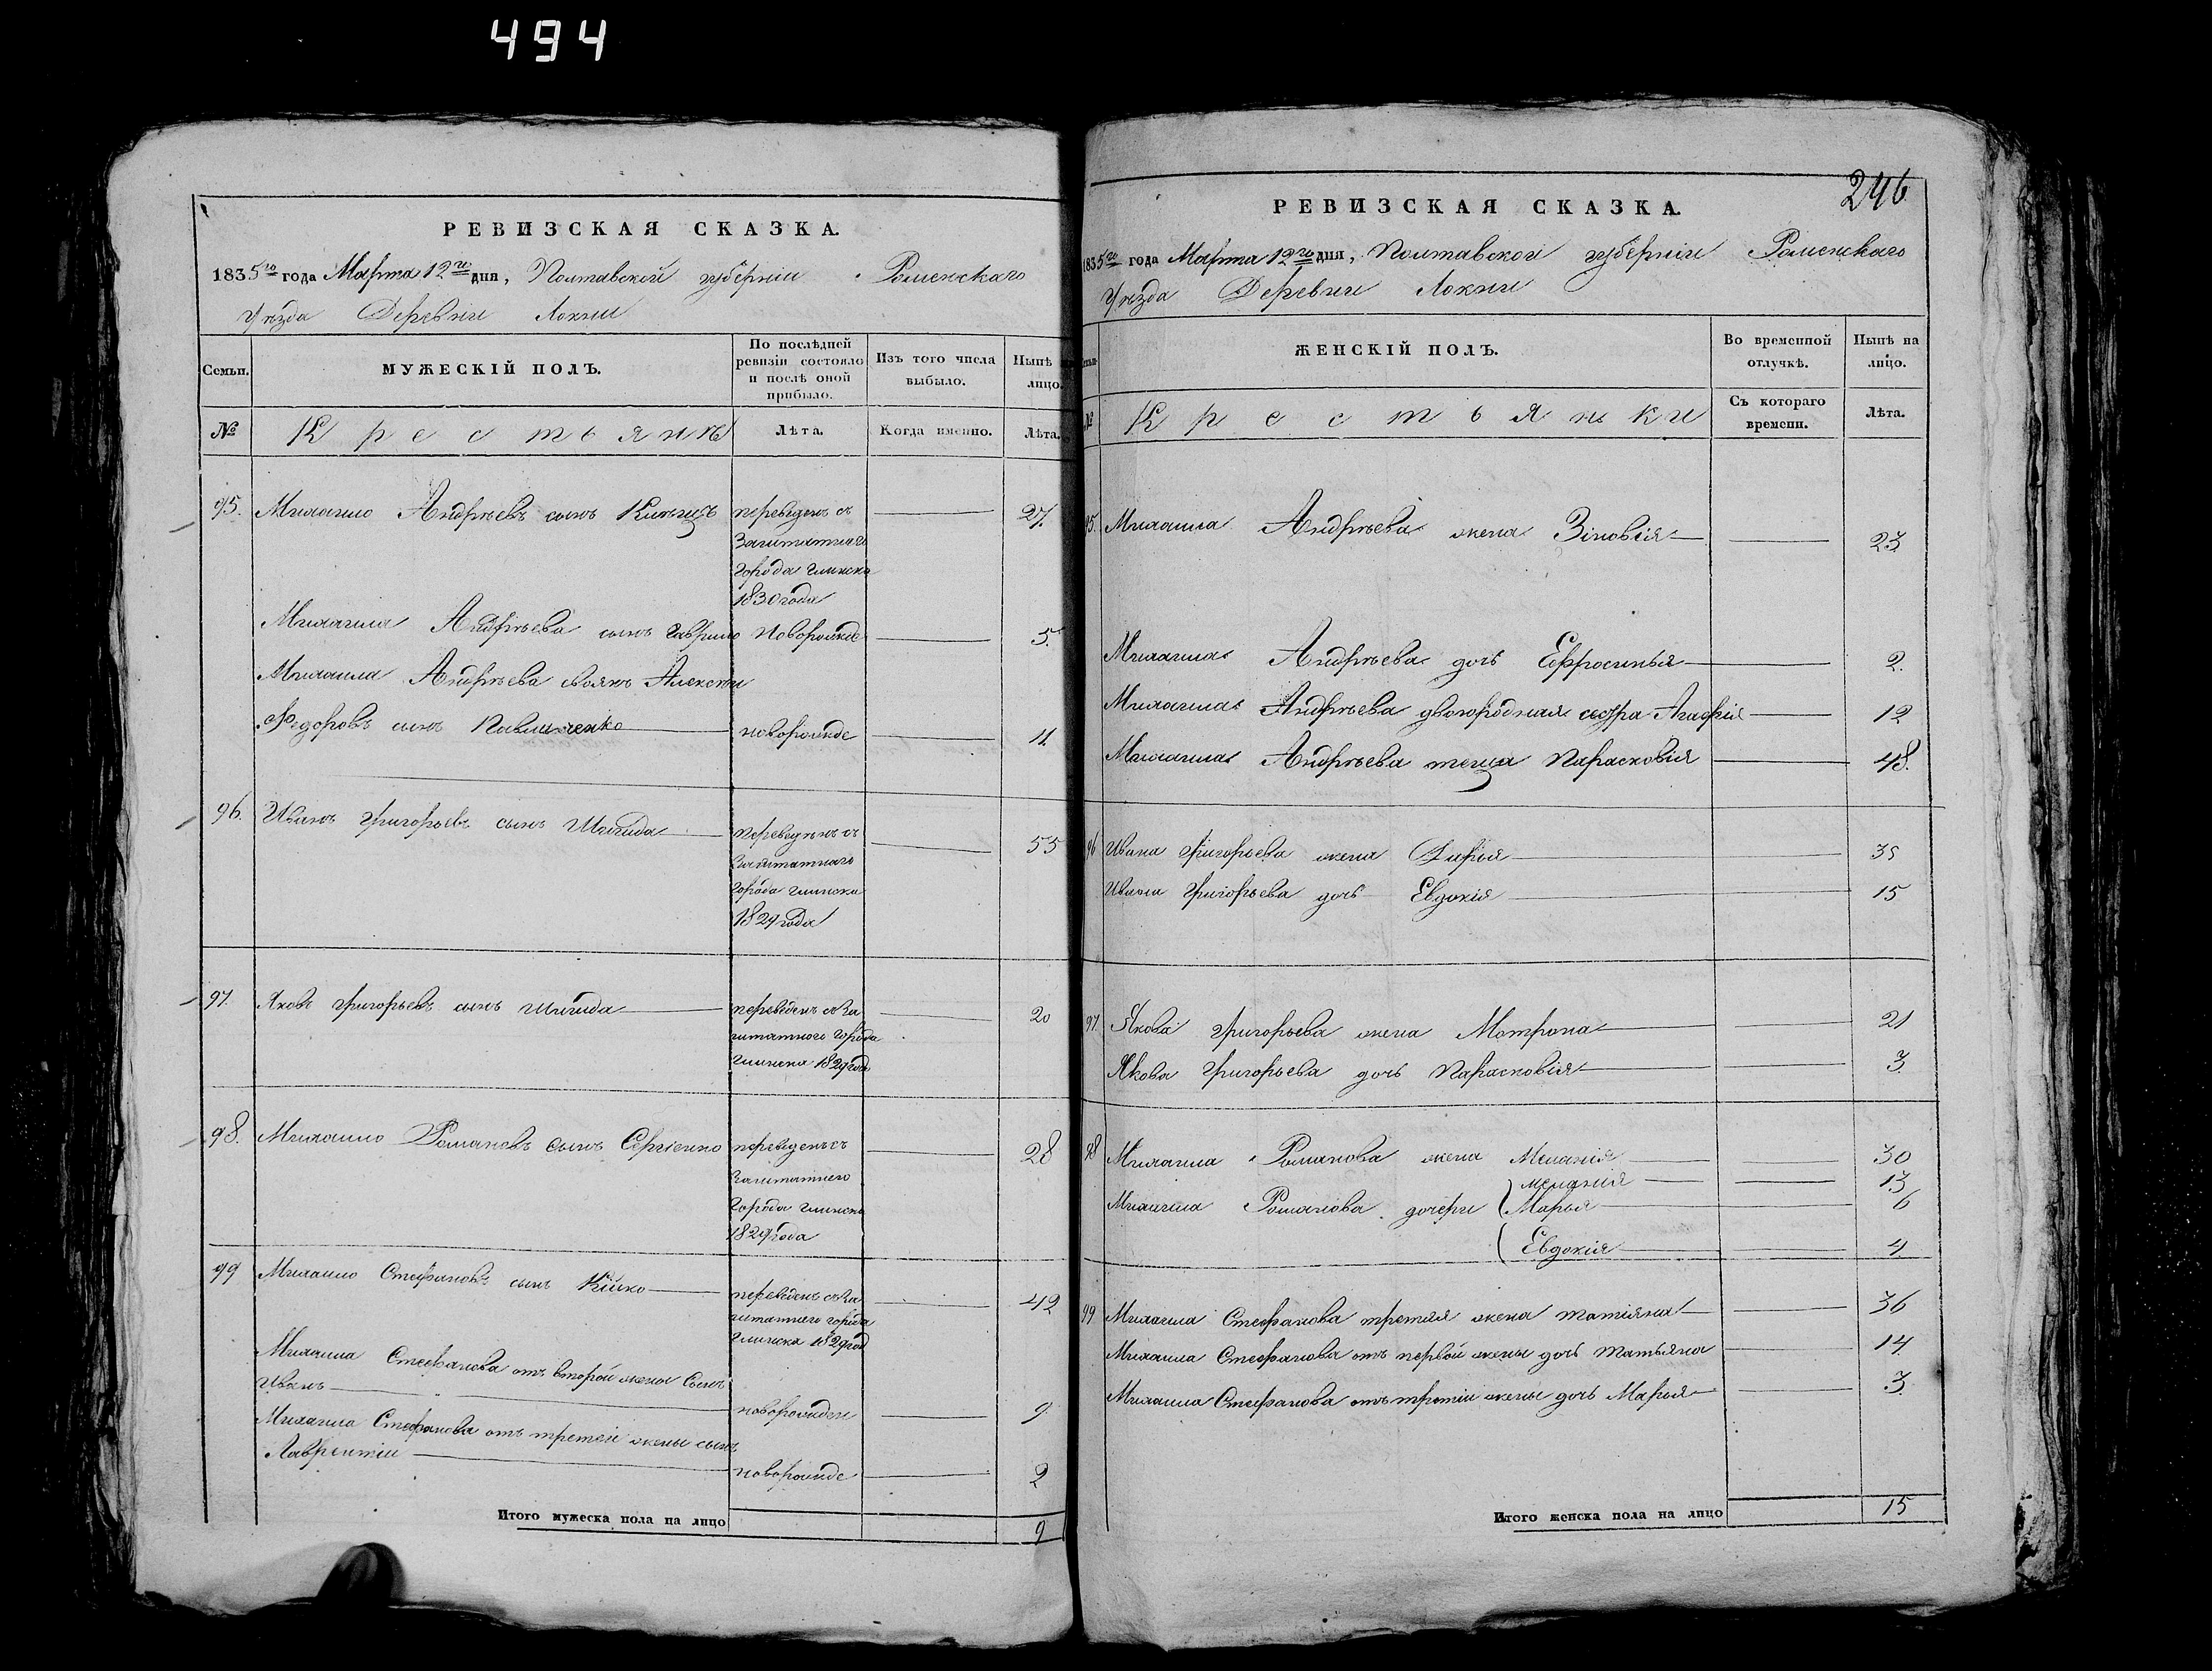 494
РЕВИЗСКАЯ СКАЗКА.
1835го года Марта 12го дня, Полтавской губерніи Роменскаго
Уѣзда Деревни Локни
Семьи.
МУЖЕСКІЙ ПОЛЪ.
По послѣдней ревизіи состояло и послѣ оной прибыло.
Изъ того числа выбыло.
Нынѣ лицо.
№
Крестьянъ
Лѣта.
Когда именно.
Лѣта.
95. Михайло Андрѣевъ сынъ переведенъ съ 27.
Заштатнаго
города Глинска
1830 года
Михайла Андрѣева сынъ Гаврило новорожде 5.
Михайла Андрѣева своякъ Алексѣй
Федоровъ сынъ Павличенко новорожде 11.
96. Иванъ Григорьевъ сынъ Шигида переведенъ съ 55
Заштатнаго
города Глинска
1829 года
97. Яковъ Григорьевъ сынъ Шигида переведенъ съ За 20
штатного города
Глинска 1829 год
98. Михайло Романовъ сынъ Сергіенко переведенъ съ 28
Заштатнего
города Глинска
1829 года
99 Михайло Стефановъ сынъ Кійко переведенъ съ За 42
штатнего города
Глинска 1829 год
Михайла Стефанова отъ второй жены сынъ
Иванъ новорожден 9
Михайла Стефанова отъ третей жены сынъ
Лаврентій новорожде 2
Итого мужеска пола на лицо 9
246
РЕВИЗСКАЯ СКАЗКА.
1835го года Марта 12го дня, Полтавской губерніи Роменскаго
Уѣзда Деревни Локни
ЖЕНСКІЙ ПОЛЪ.
Во временной отлучкѣ.
Нынѣ на лицо.
№
Крестьянки
Съ котораго времени.
Лѣта.
95. Михайла Андрѣева жена Зіновія 23
Михайла Андрѣева дочь Ефросинья 2.
Михайла Андрѣева двоюродная сестра Агафія 12
Михайла Андрѣева теща Парасковія 48.
96 Ивана Григорьева жена Дарья 35
Ивана Григорьева дочь Евдокія 15
97 Якова Григорьева жена Мотрона 21
Якова Григорьева дочь Парасковія 3
98 Михайла Романова жена Меланія 30
Меланія 13
Михайла Романова дочери Марья 6
Евдокія 4
99 Михайла Стефанова третяя жена Татіяна 36
Михайла Стефанова отъ первой жены дочь Татьяна 14
Михайла Стефанова отъ третіи жены дочь Марья 3
Итого женска пола на лицо 15